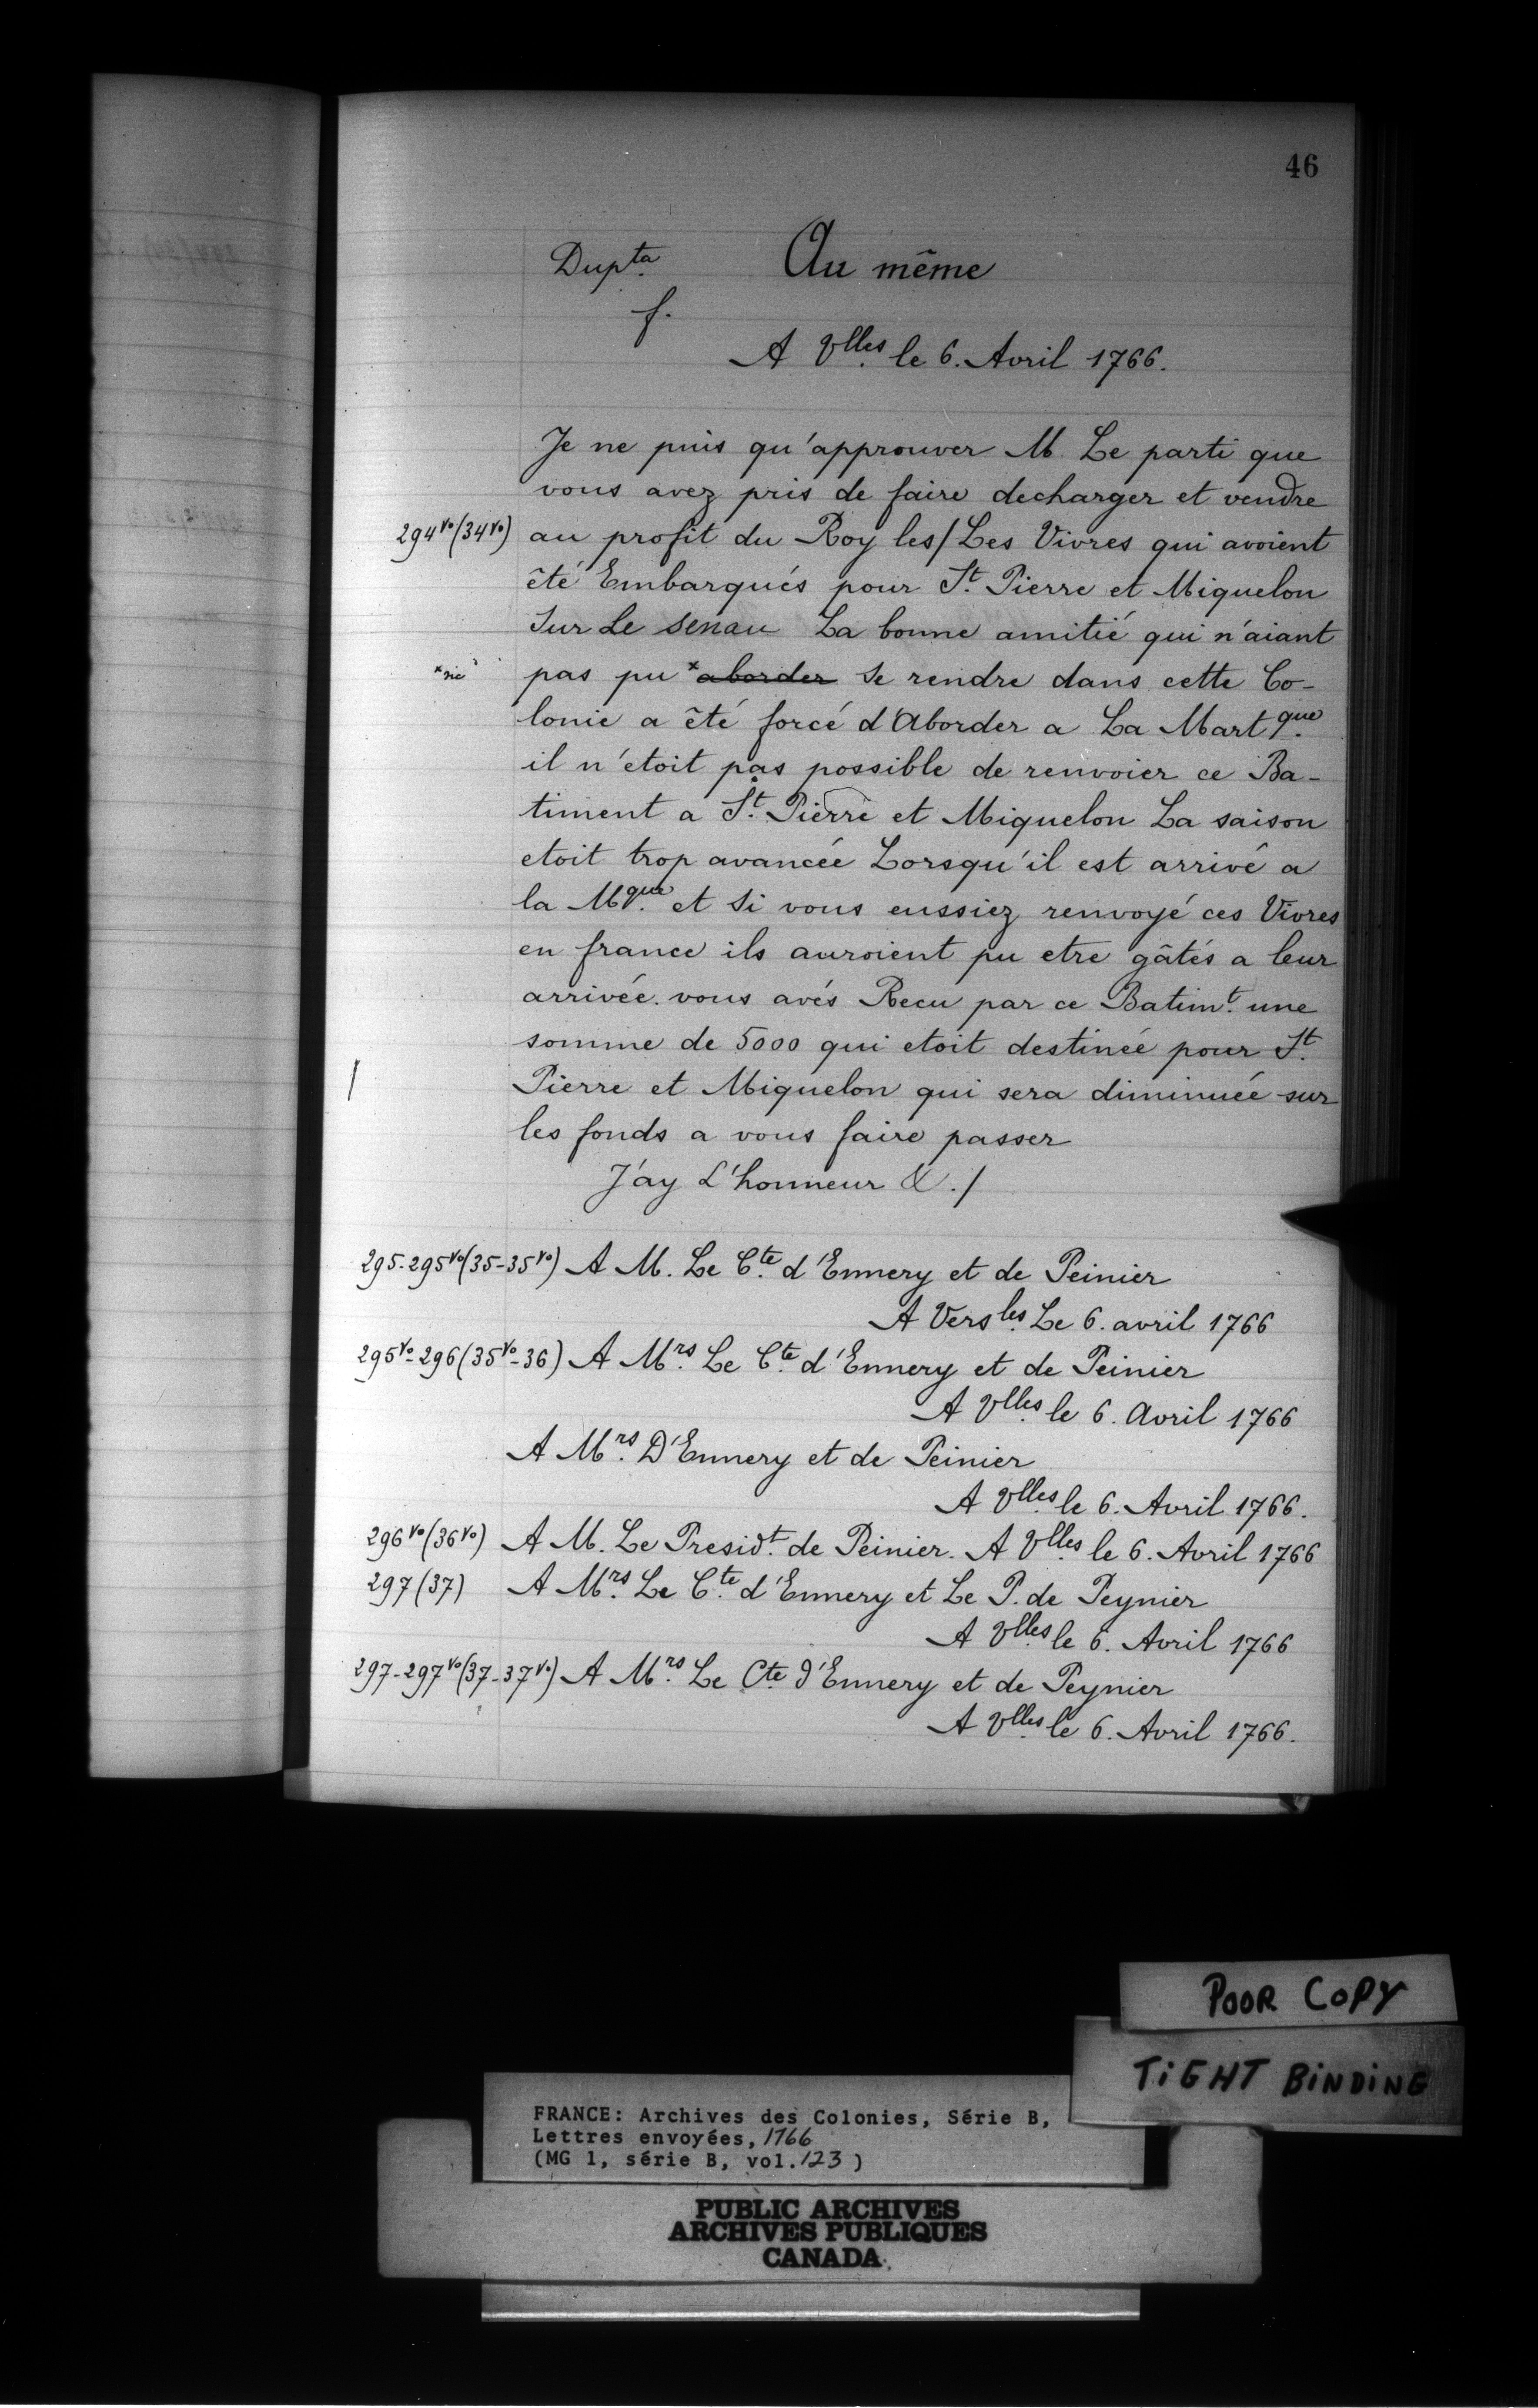 46
Dupta. Au même
f.
A Vlles. le 6. Avril 1766.
Je ne puis qu'approuver M. Le parti que
vous avez pris de faire decharger et vendre
294vo(34vo) au profit du Roy les/Les Vivres qui avoient
êté Embarqués pour St. Pierre et Miquelon
sur Le senau La bonne amitié qui n'aiant
*sic pas pu *aborder se rendre dans cette Co-
lonie a êté forcé d'Aborder a La Martque.
il n'etoit pas possible de renvoier ce Ba-
timent a St. Pierre et Miquelon La saison
etoit trop avancée Lorsqu'il est arrivé a
la Mque. et si vous eussiez renvoyé ces Vivres
en france ils auroient pu etre gâtés a leur
arrivée. vous avés Recu par ce Batimt. une
somme de 5000 qui etoit destinée pour St.
Pierre et Miquelon qui sera diminuée sur
les fonds a vous faire passer
J'ay L'honneur &./
295-295vo(35-35vo) A M. Le Cte. d'Ennery et de Peinier
A Versles. Le 6. avril 1766
295vo-296(35vo-36) A Mrs. Le Cte. d'Ennery et de Peinier
A Vlles. le 6. Avril 1766
A Mrs. D'Ennery et de Peinier
A Vlles. le 6. Avril 1766.
296vo(36vo) A M. Le Presidt. de Peinier. A Vlles. le 6. Avril 1766
297(37) A Mrs. Le Cte. d'Ennery et Le P. de Peynier
A Vlles. le 6. Avril 1766
297-297vo(37-37vo) A Mrs. Le Cte. d'Ennery et de Peynier
A Vlles. le 6. Avril 1766.
POOR COPY
TIGHT BINDING
FRANCE: Archives des Colonies, Série B,
Lettres envoyées, 1766
(MG 1, série B, vol. 123)
PUBLIC ARCHIVES
ARCHIVES PUBLIQUES
CANADA